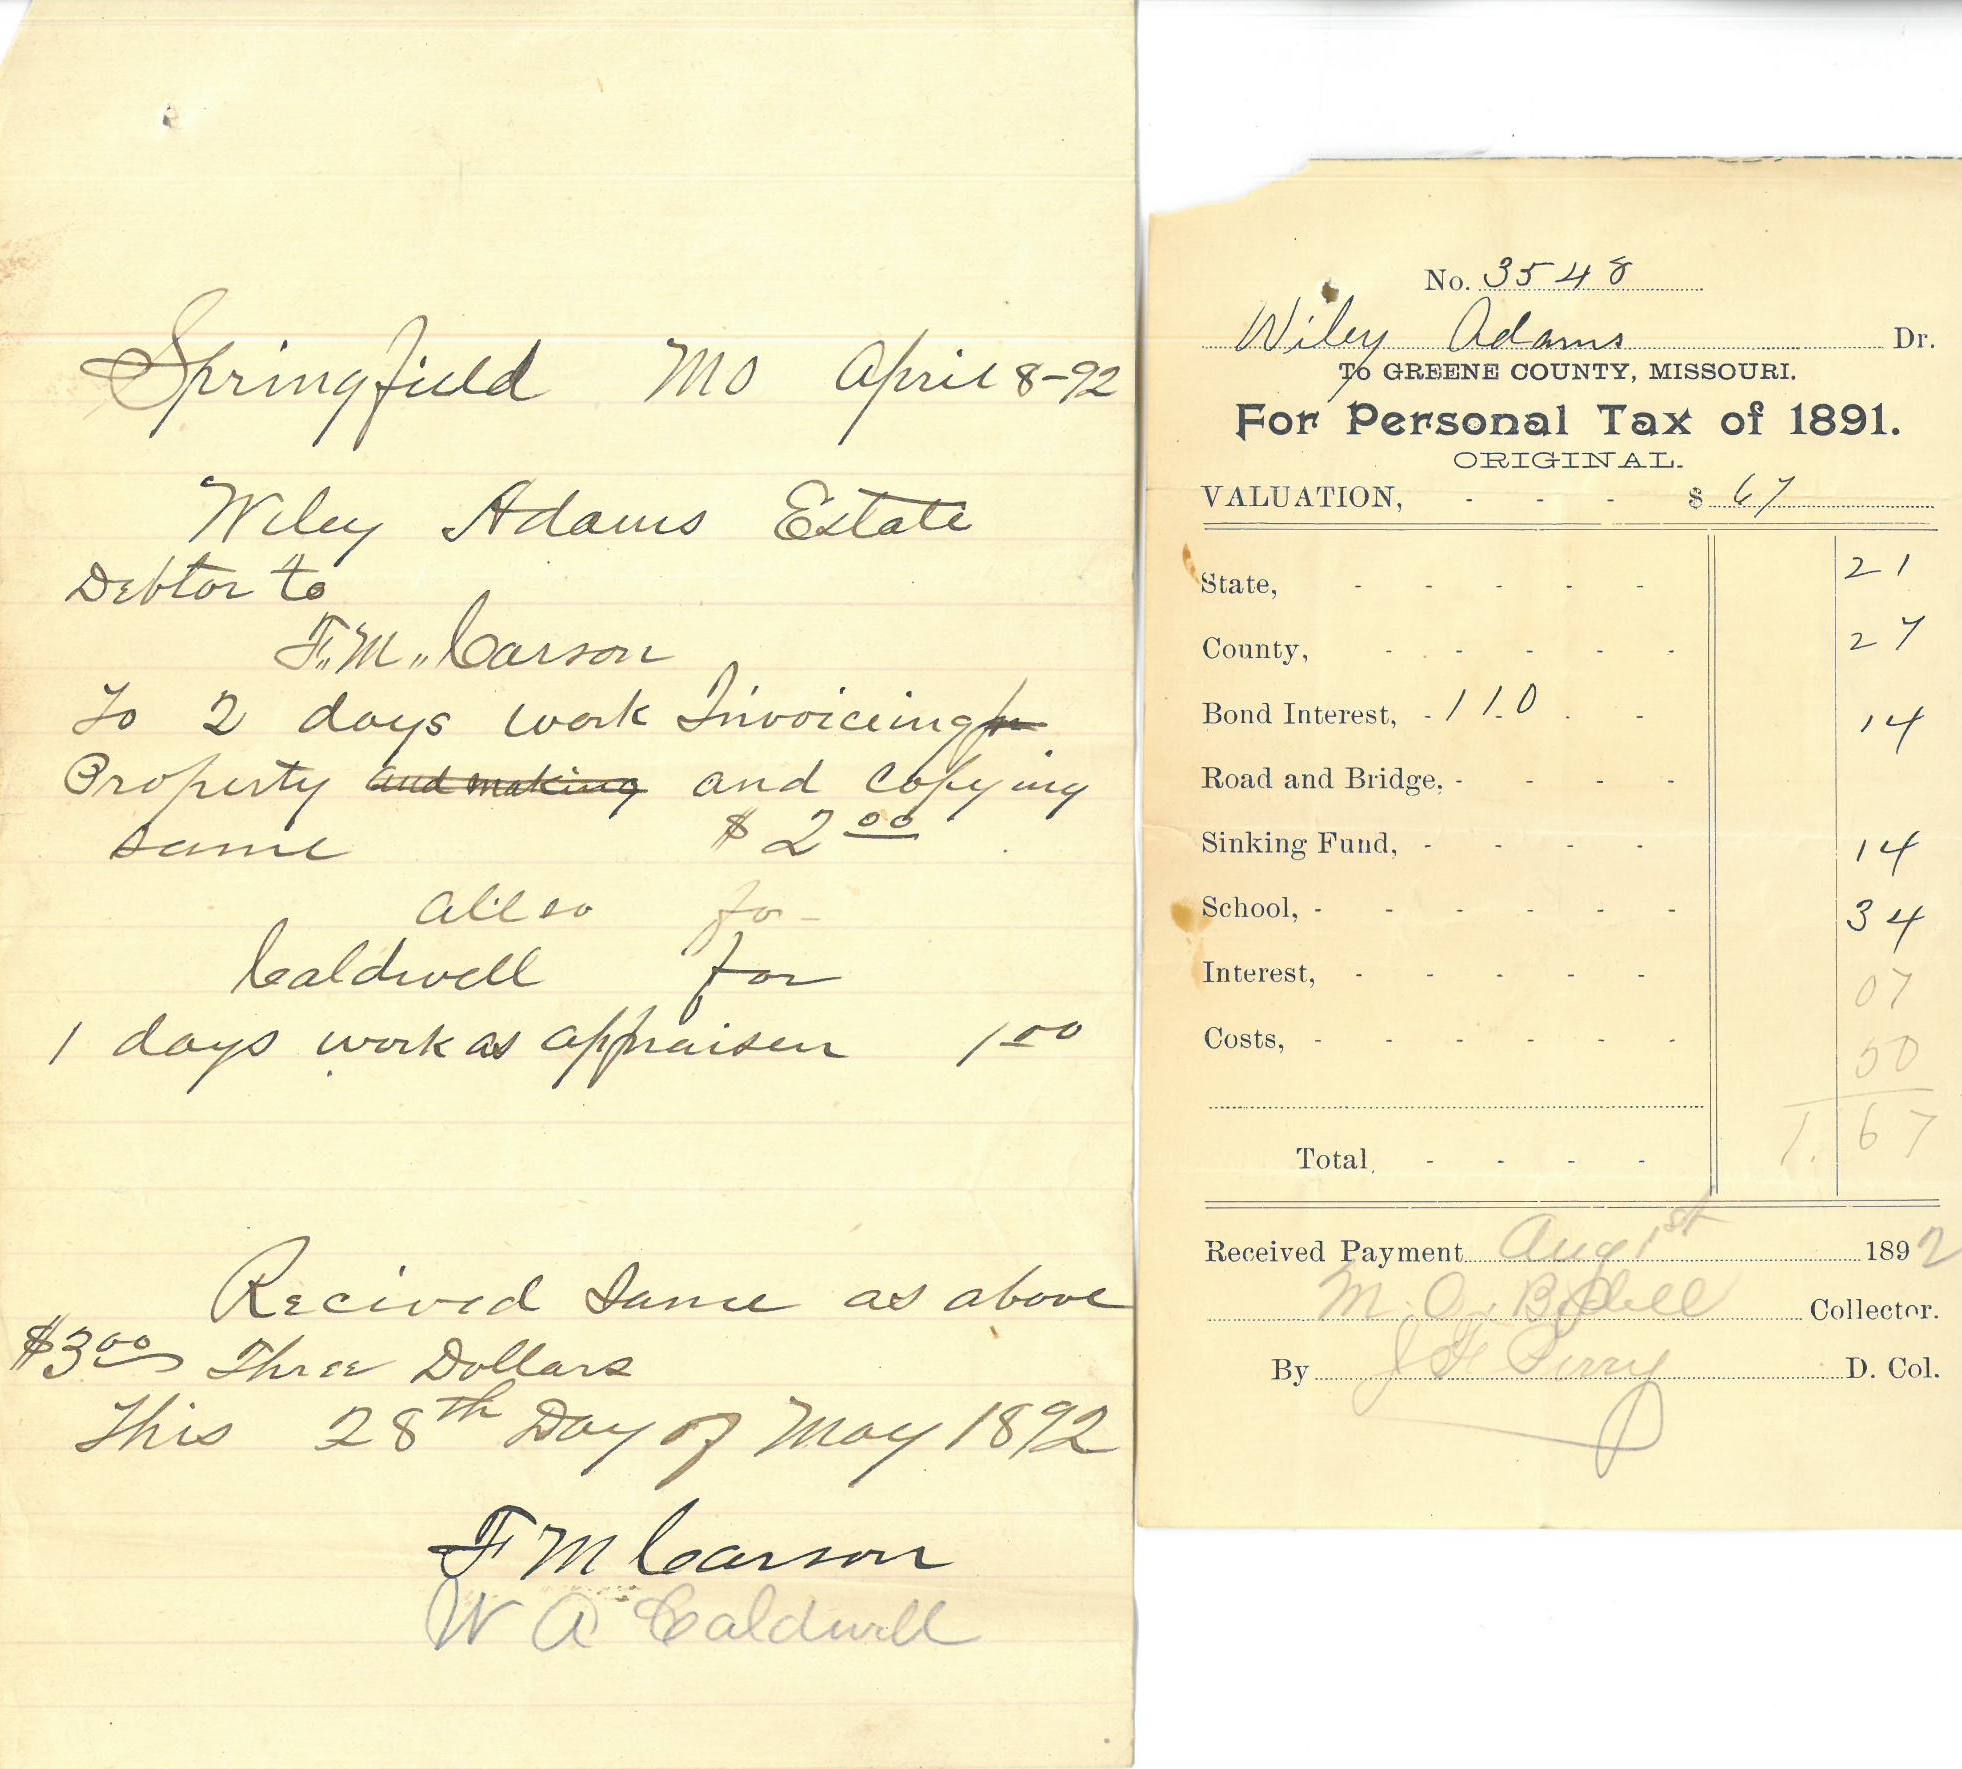 Springfield Mo April 8-92
Wiley Adams Estate
Debtor to
F.M. Carson
To 2 days work Invoiceing
Property and making and Copying
same $2 00
allso fo-
Caldwell for
1 days work as appraiser 1 00
Recived Same as above
$3 00 Three Dollars
This 28th Day of May 1892
F M Carson
W A Caldwell
No. 3548
Wiley Adams Dr.
To GREENE COUNTY, MISSOURI.
For Personal Tax of 1891.
ORIGINAL.
VALUATION, - - - $ 67
State, - - - - - 21
County, - - - - - 27
Bond Interest, - 110 - - 14
Road and Bridge, - - - -
Sinking Fund, - - - - 14
School, - - - - - - 34
Interest, - - - - - 07
Costs, - - - - - - 50
Total, - - - - 1.67
Received Payment Aug 1st 1892
M. O. Bedell Collector.
By J H Perry D. Col.